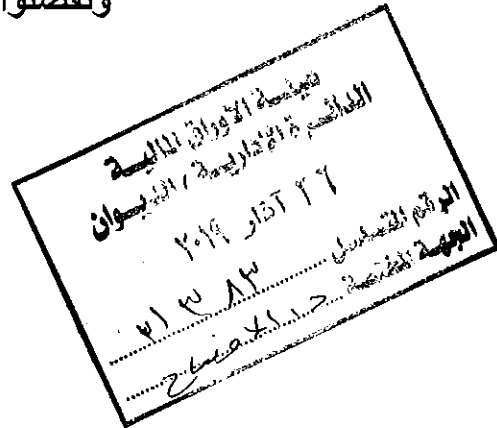 وتفضلوا
هيئة الأوراق المالية
الدائرة الإدارية / الديوان
٢٦ آذار ٢٠١٩
الرقم المتسلسل
الجهة المختصة الافصاح